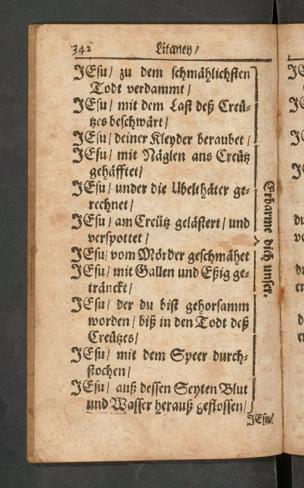 342 Litaney/
JEsu/ zu dem schmählichsten
Todt verdammt/
JEsu/ mit dem Last deß Creü-
tzes beschwärt/
JEsu/ deiner Kleyder beraubet/
JEsu/ mit Näglen ans Creütz
gehäfftet/
JEsu/ under die Ubelthäter ge-
rechnet/
JEsu/ am Creütz gelästert/ und
verspottet/
JEsu/ vom Mörder geschmähet
JEsu/ mit Gallen und Eßig ge-
tränckt/
JEsu/ der du bist gehorsamm
worden/ biß in den Todt deß
Creützes/
JEsu/ mit dem Speer durch-
stochen/
JEsu/ auß dessen Seyten Blut
und Wasser herauß geflossen/
Erbarme dich unser.
JEsu/